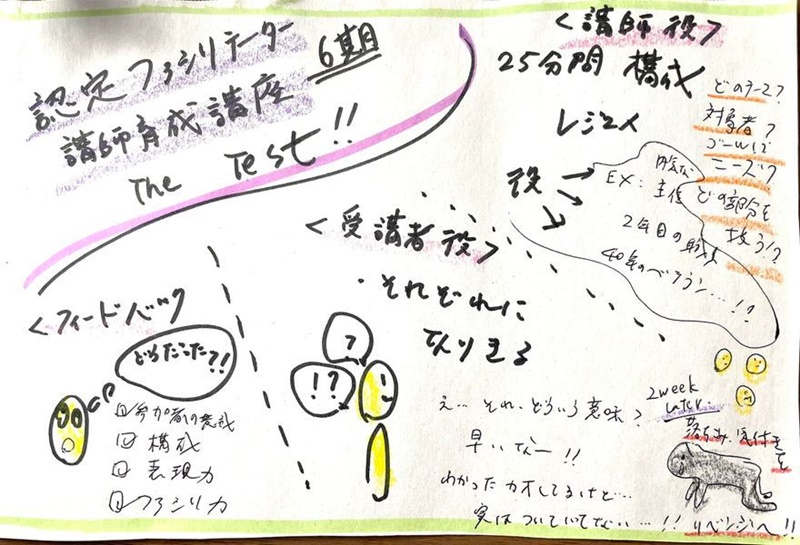 認定ファシリテーター
講師育成講座 6期目
The Test!!
<講師役>
25分間 構成
レジュメ
どのテーマ?
対象者?
ゴールは?
ニーズは?
どの部分を
扱う!?
役→
EX: 主任
2年目の職員
40年のベテラン…!?
<受講者役>
・それぞれに
なりきる
?
!?
え… それ、どういう意味?
早いなー!!
わかったカオしてるけど…
実はついていてない…!!
<フィードバック
どうだった?!
参加者の変成
構成
表現力
ファシリ力
2week
Later.
落ち込み、気付きを
リベンジへ!!